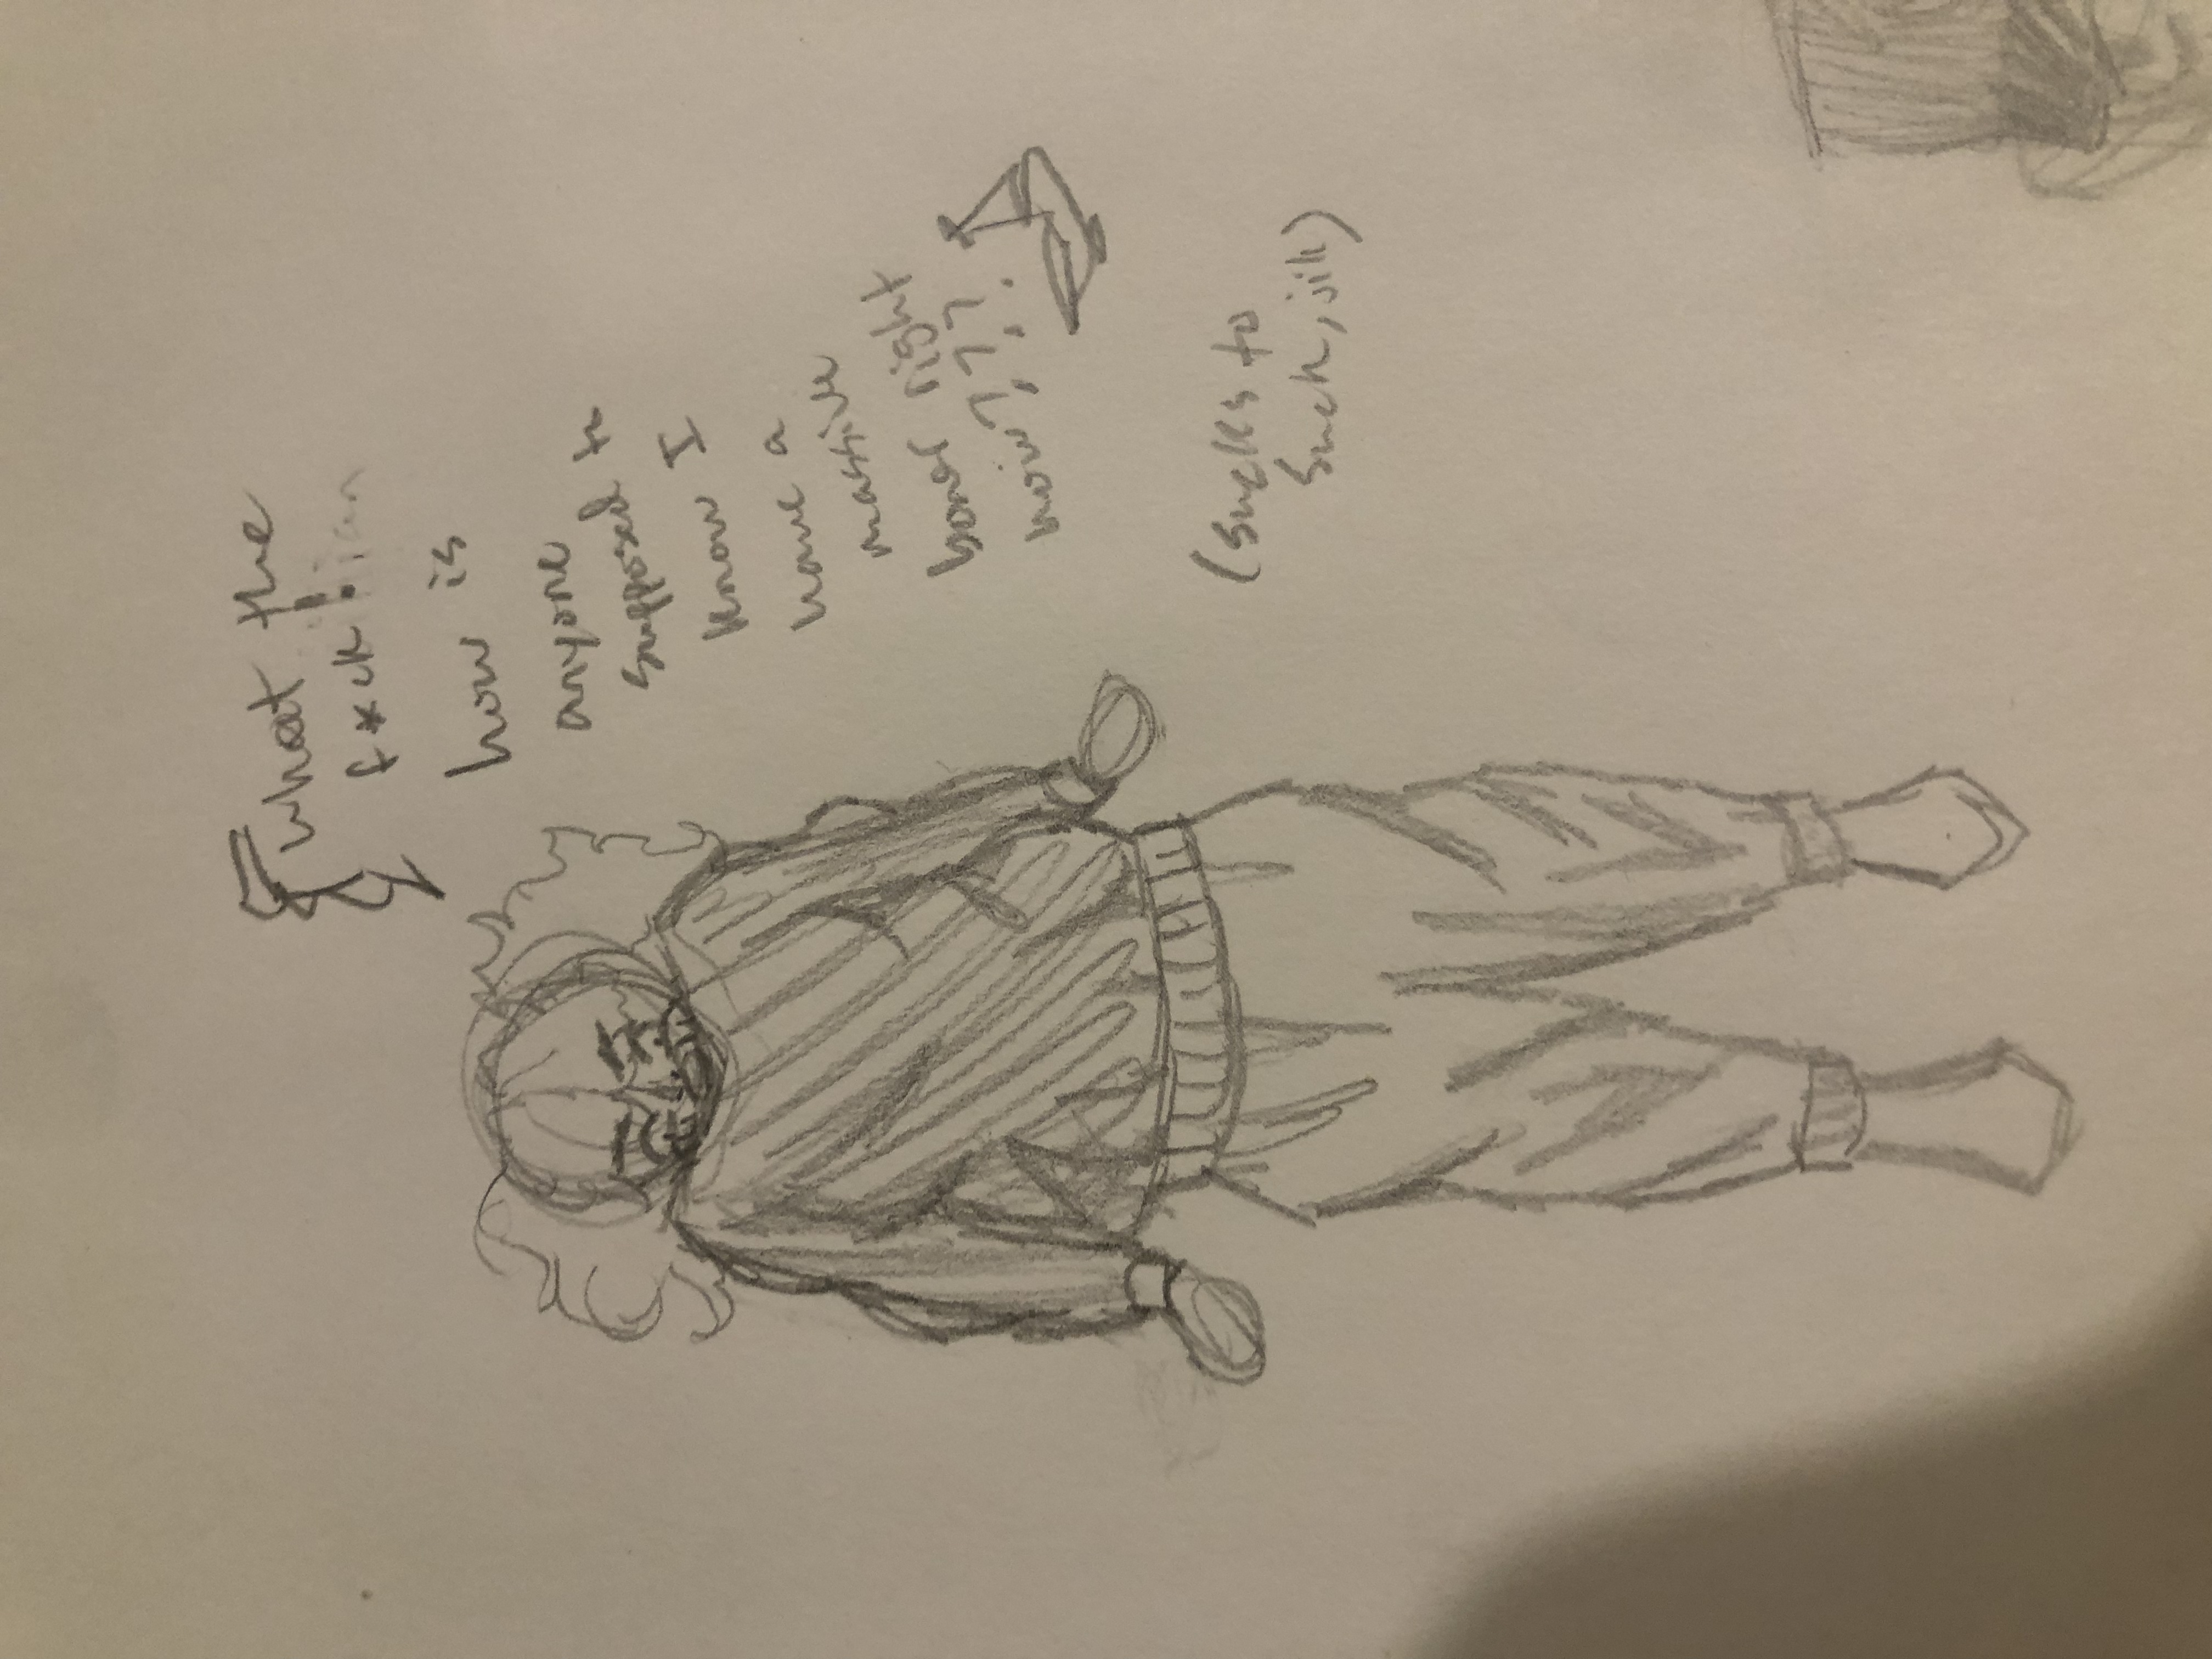 what the
f*ck!
how is
anyone
supposed to
know I
have a
massive
boner right
now?,?,?.
(sucks to
suck, jill)